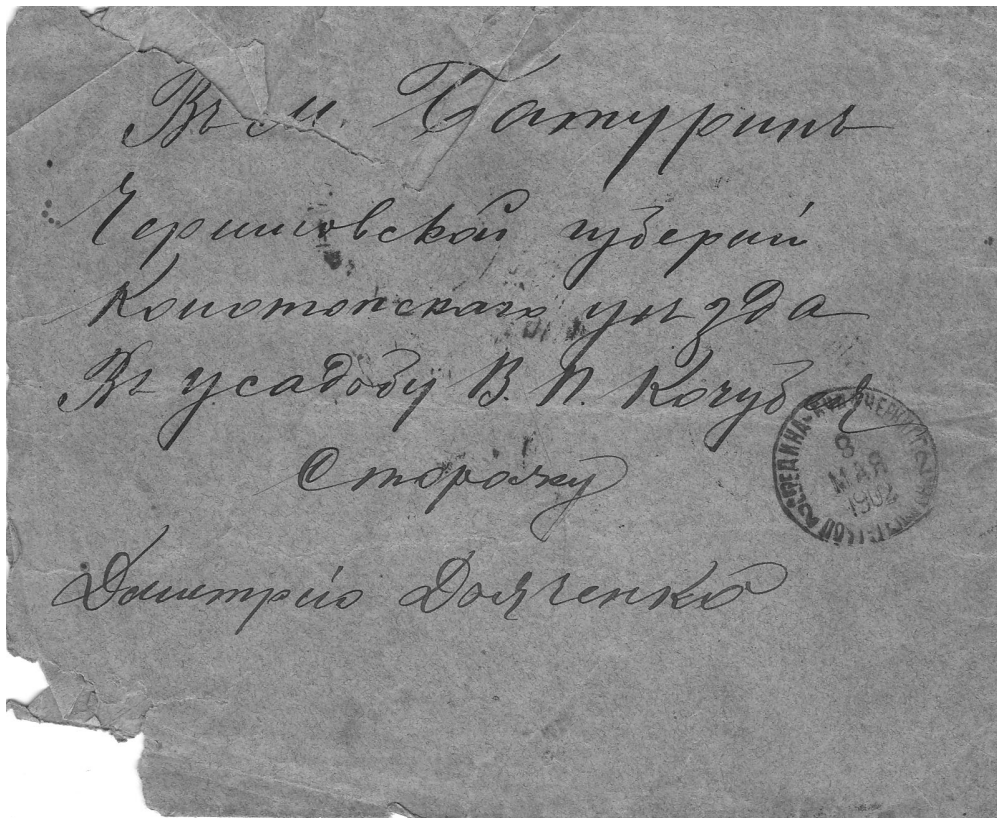 Въ м. Батуринъ
Черниговской губерніи
Конотопскаго уѣзда
Въ усадьбу В. П. Кочубея
Сторожу
Дмитрію
8
МАЯ
1902